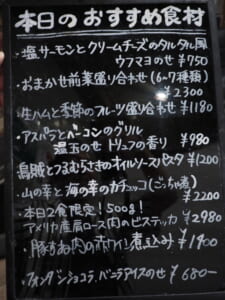 本日のおすすめ食材
・塩サーモンとクリームチーズのタルタル風
ウフマヨのせ ¥750
・おまかせ前菜盛り合わせ(6〜7種類)
¥2300
・生ハムと季節のフルーツ盛り合わせ ¥1180
・アスパラとベーコンのグリル
温玉のせ トリュフの香り ¥980
・烏賊とつるむらさきのオイルソースパスタ ¥1200
・山の幸と海の幸のカチュッコ(ごった煮)
¥2200
・本日2食限定!500g!
アメリカ産肩ロース肉のビステッカ ¥2980
・豚ほほ肉の赤ワイン煮込み ¥1900
・フォンダンショコラ、バニラアイスのせ ¥680-